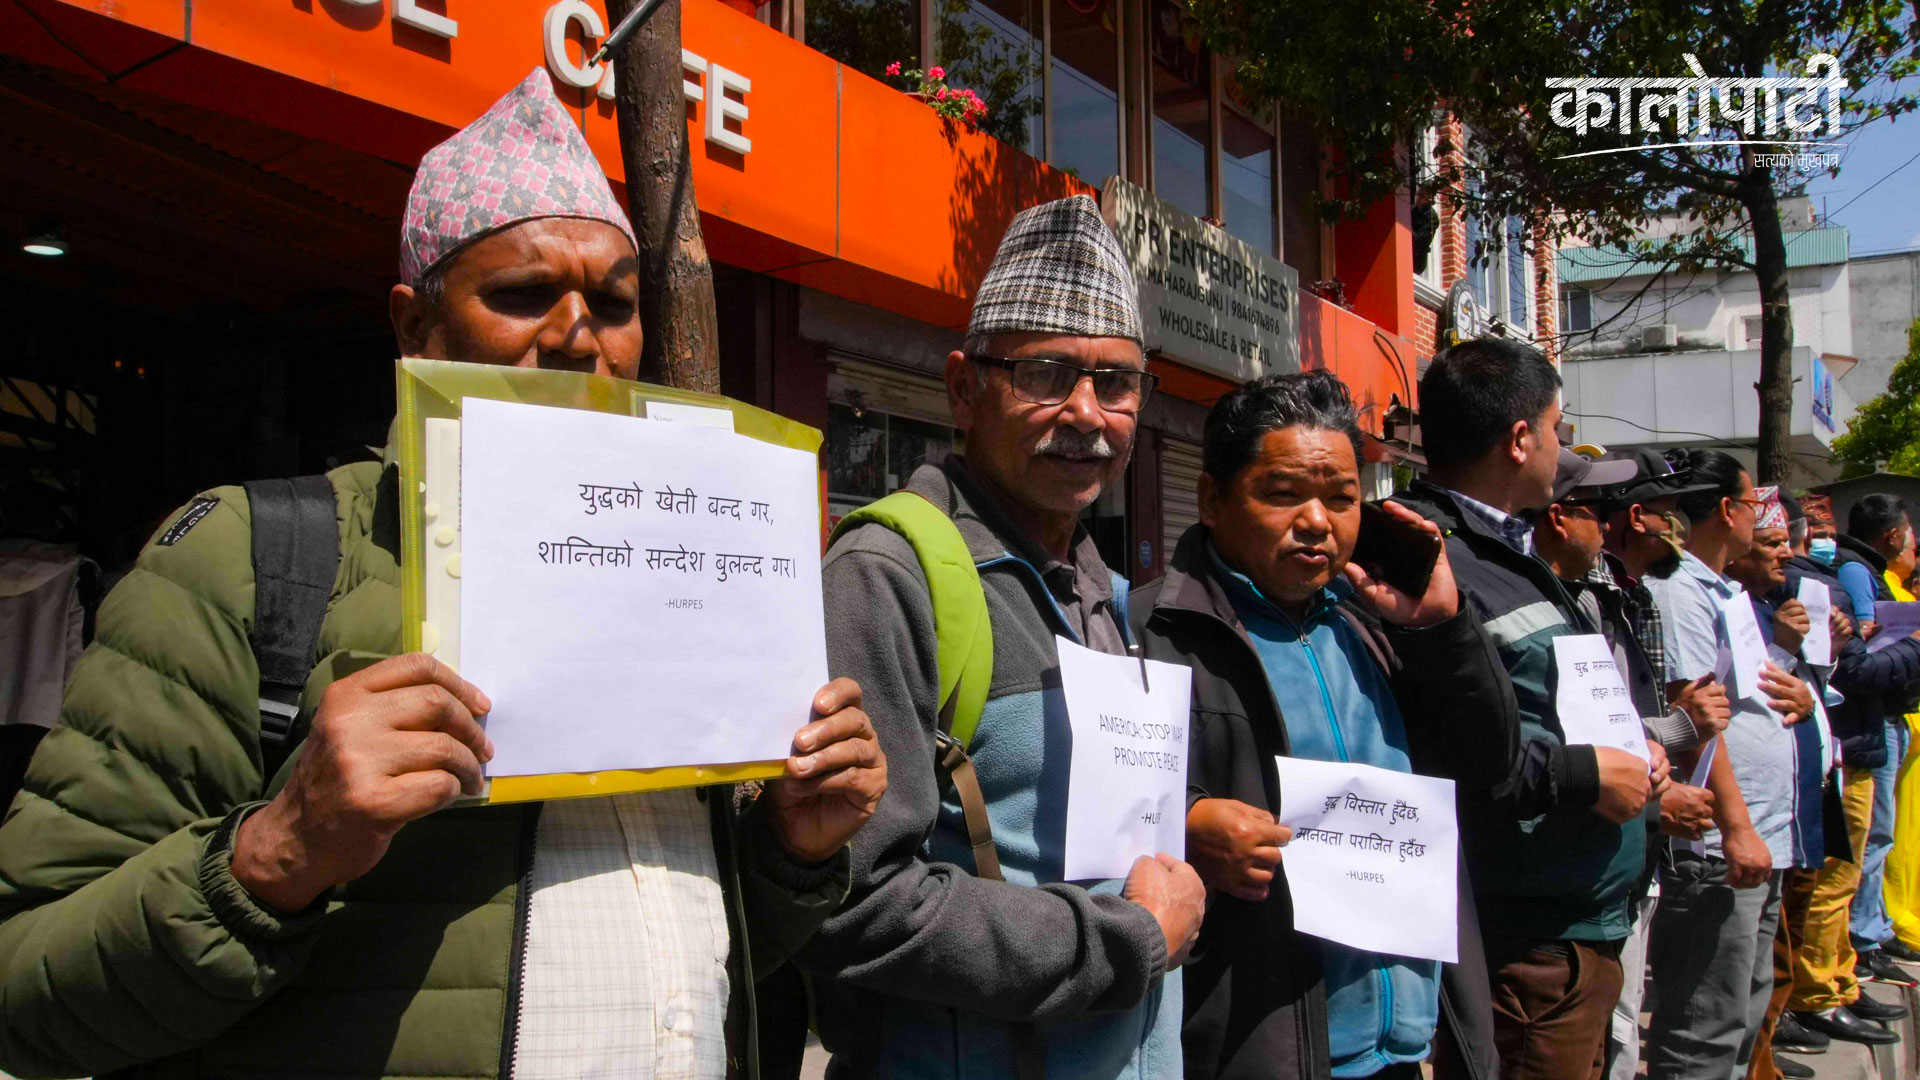 CAFE
कालोपाटी
सत्यको मुखपत्र
PR ENTERPRISES
MAHARAJGUNJ | 9841674896
WHOLESALE & RETAIL
युद्धको खेती बन्द गर,
शान्तिको सन्देश बुलन्द गर।
-HURPES
AMERICA: STOP WAR
PROMOTE PEACE
युद्ध विस्तार हुँदैछ,
मानवता पराजित हुदैँछ
-HURPES
युद्ध
होइन:
-HURPES